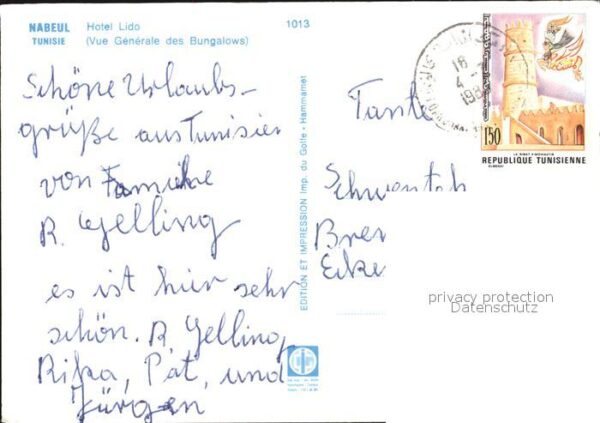 NABEUL Hotel Lido 1013
TUNISIE (Vue Générale des Bungalows)
Schöne Urlaubs-
grüße aus Tunisien
von Familie
R. Yelling
es ist hier sehr
schön. R. Yelling,
Rika, Pat, und
Jürgen
EDITION ET IMPRESSION Imp. du Golfe - Hammamet
Tante
Schwentoh
Brer
Ecke
18
4
150
REPUBLIQUE TUNISIENNE
privacy protection
Datenschutz